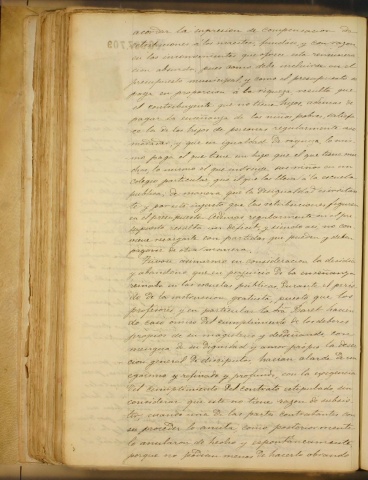 acordar la supresion de compensacion de
retribuciones á los maestros, fundados y con razon
en los inconvenientes que ofrece esta
son abusiva, pues como debe incluirse en el
presupuesto municipal y como el presupuesto se
paga en proporcion á la riqueza resulta que
el contribuyente que no tiene hijos, además de
pagar la enseñanza de los niños pobres, satisfa-
ce la de los hijos de personas regularmente aco-
modadas, y que en igualdad de riqueza lo mis-
mo paga el que tiene un hijo que el que tiene mu-
chos, lo mismo el que sus niños en un
colegio particular que el que los lleva á la escuela
publica, de manera que la desigualdad
y por esto injusto que las retribuciones figuren
en el presupuesto. Además regularmente en el pre-
supuesto resulta un deficit, y siendo así, no con-
viene recargarle con partidas que pueden y deben
pagarse de otra manera.
en consideracion la desidia
y abandono que en perjuicio de la enseñanza
reinaba en las escuelas publicas durante el perio-
do de la instruccion gratuita, puesto que los
profesores y en particular la Sra.
do caso omiso del cumplimiento de los deberes
propios de su magisterio y desdeñando con
mengua de su dignidad y amor propio la
cion general de discipulos, hacian alarde de un
egoismo refinado y profundo, con la exigencia
del cumplimiento del contrato estipulado sin
considerar que este no tiene razon de subsis-
tir cuando una de las partes contratantes con
su proceder lo anula, como posteriormente
lo anularon de hecho y espontaneamente,
porque no podian menos de hacerlo obrando